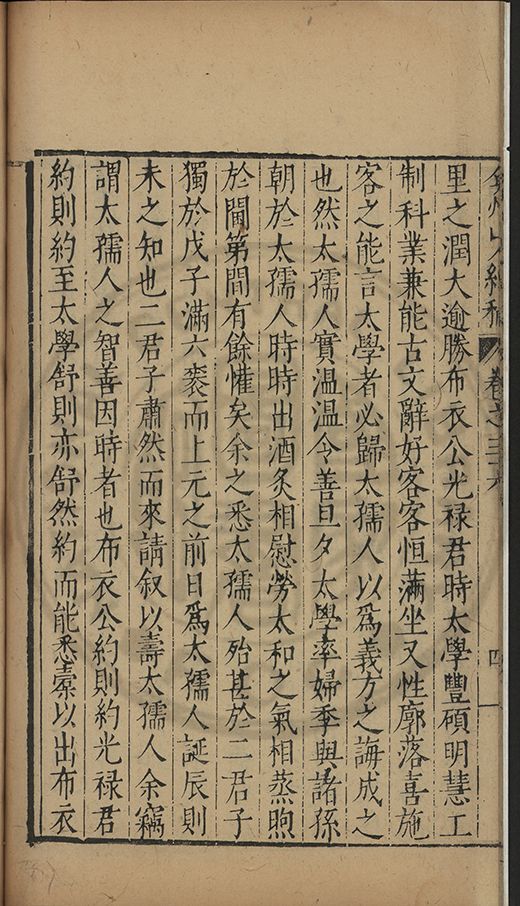 弇州山人續稿 卷之三十六 四
里之潤大逾勝布衣公光祿君時太學豐碩明慧工
制科業兼能古文辭好客客恒滿坐又性廓落喜施
客之能言太學者必歸太孺人以爲義方之誨成之
也然太孺人實溫溫令善旦夕太學率婦季與諸孫
朝於太孺人時時出酒炙相慰勞太和之氣相蒸煦
於閫第間有餘懽矣余之悉太孺人殆甚於二君子
獨於戊子滿六袠而上元之前日爲太孺人誕辰則
未之知也二君子肅然而來請叙以壽太孺人余竊
謂太孺人之智善因時者也布衣公約則約光祿君
約則約至太學舒則亦舒然約而能悉橐以出布衣